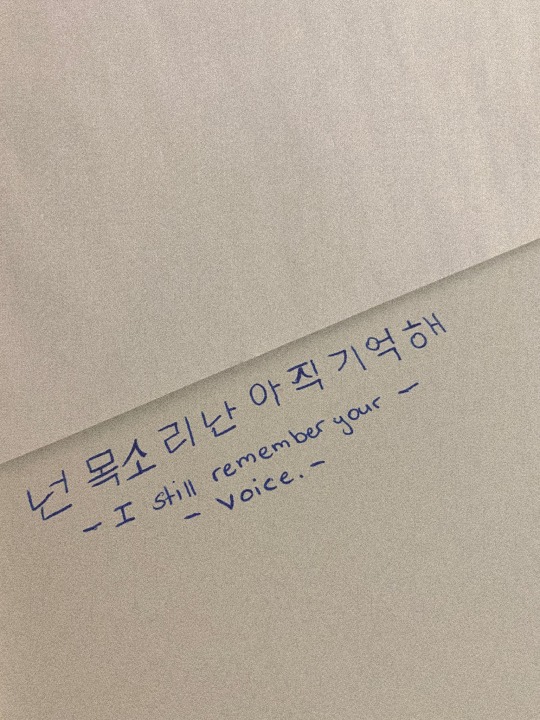 넌 목소리난 아직 기억해
- I still remember your -
- voice. -